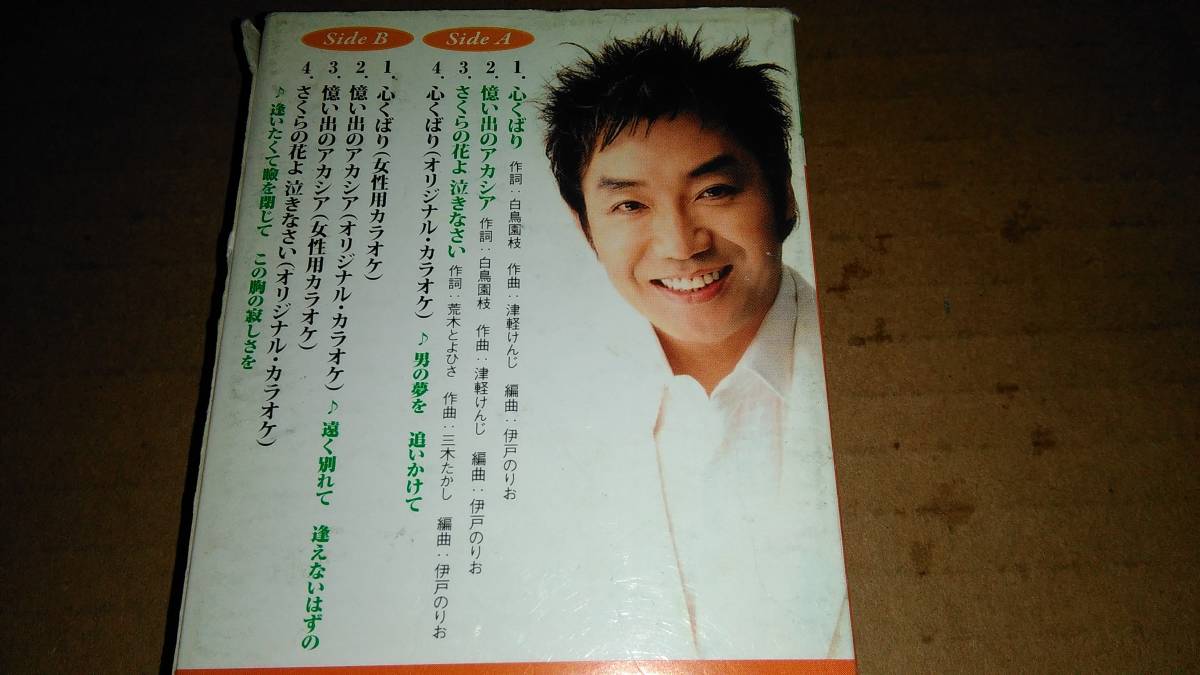 Side A
1. 心くばり 作詞:白鳥園枝 作曲:津軽けんじ 編曲:伊戸のりお
2. 憶い出のアカシア 作詞:白鳥園枝 作曲:津軽けんじ 編曲:伊戸のりお
3. さくらの花よ 泣きなさい 作詞:荒木とよひさ 作曲:三木たかし 編曲:伊戸のりお
4. 心くばり(オリジナル・カラオケ) ♪男の夢を 追いかけて
Side B
1. 心くばり(女性用カラオケ)
2. 憶い出のアカシア(オリジナル・カラオケ) ♪遠く別れて 逢えないはずの
3. 憶い出のアカシア(女性用カラオケ)
4. さくらの花よ 泣きなさい(オリジナル・カラオケ)
♪逢いたくて瞼を閉じて この胸の寂しさを